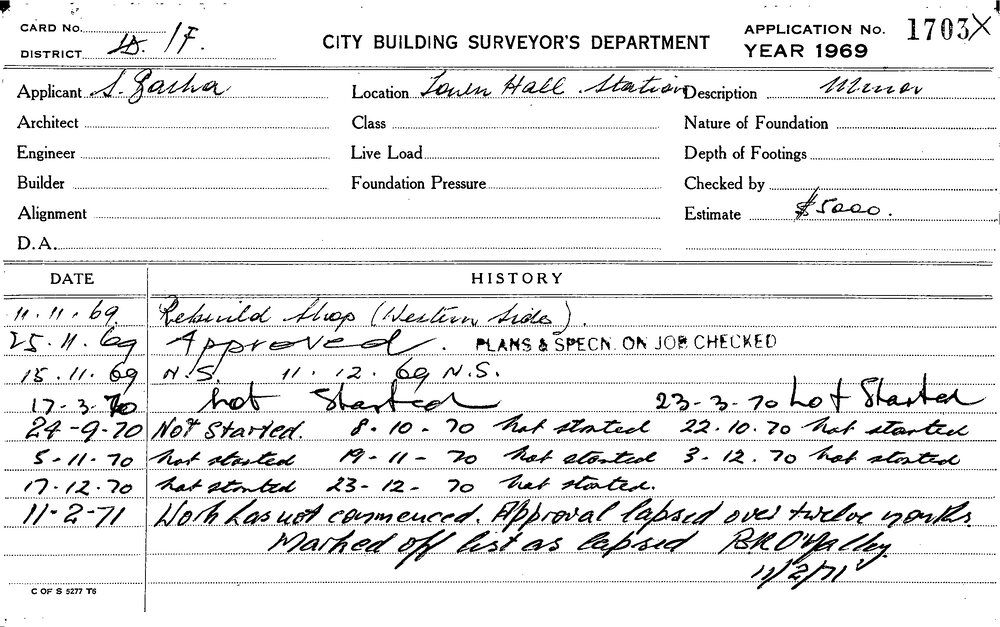 CARD No.
DISTRICT D. /F.
CITY BUILDING SURVEYOR'S DEPARTMENT
APPLICATION No. 1703X
YEAR 1969
Applicant S. Location Town Hall Station Description Minor
Architect Class Nature of Foundation
Engineer Live Load Depth of Footings
Builder Foundation Pressure Checked by
Alignment Estimate $5000.
D.A.
DATE HISTORY
11.11.69 Rebuild Shop (Western Side).
25.11.69 Approved. PLANS & SPECN. ON JOB CHECKED
15.11.69 N.S. 11.12.69 N.S.
17-3-70 Not Started 23-3-70 Not Started
24-9-70 Not Started. 8-10-70 Not started 22.10.70 Not started
5-11-70 Not started 19-11-70 Not started 3-12.70 Not started
17.12.70 Not started 23-12-70 Not started.
11-2-71 Work has not commenced. Approval lapsed over twelve months.
Marked off list as lapsed B.R. O'Malley.
11/2/71
C OF S 5277 T6